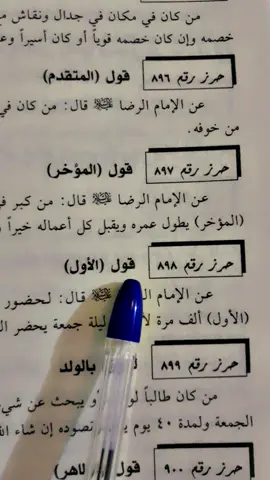 من كان في مكان في جدال ونقاش
خصمه وإن كان خصمه قوياً أو كان أسيراً
حرز رقم ٨٩٦ قول (المتقدم)
عن الإمام الرضا ﷺ قال: من كان في
من خوفه.
حرز رقم ٨٩٧ قول (المؤخر)
عن الإمام الرضا ﷺ قال: من كبر
(المؤخر) يطول عمره ويقبل كل أعماله خيراً
حرز رقم ٨٩٨ قول (الأول)
عن الإمام قال: لحضور
(الأول) ألف مرة ليلة جمعة يحضر
حرز رقم ٨٩٩ بالولد
من كان طالباً أو يبحث عن
الجمعة ولمدة ٤٠ يوم إن شاء
حرز رقم ٩٠٠ قول